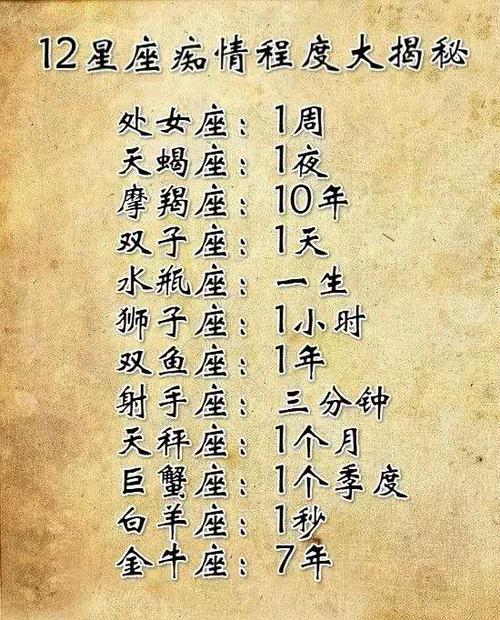 12星座痴情程度大揭秘
处女座：1周
天蝎座：1夜
摩羯座：10年
双子座：1天
水瓶座：一生
狮子座：1小时
双鱼座：1年
射手座：三分钟
天秤座：1个月
巨蟹座：1个季度
白羊座：1秒
金牛座：7年